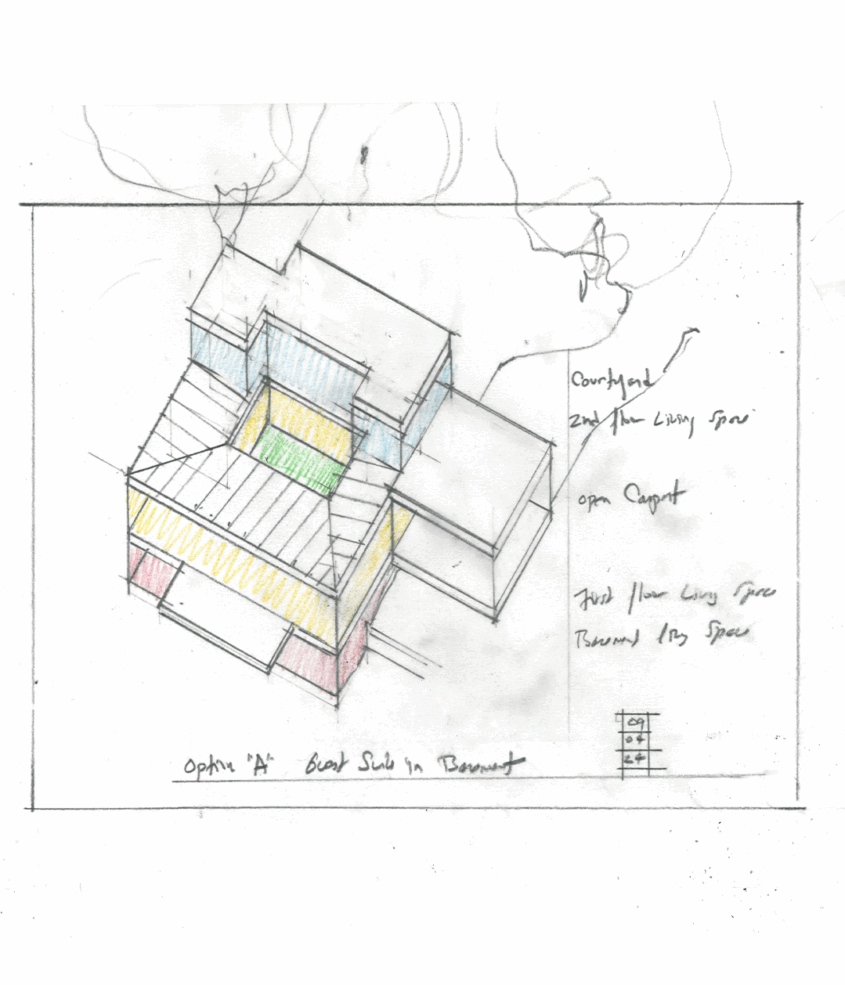 Courtyard
2nd floor Living Space
open Carport
First floor Living Space
Basement Living Space
09
04
24
Option "A" Guest Suite in Basement